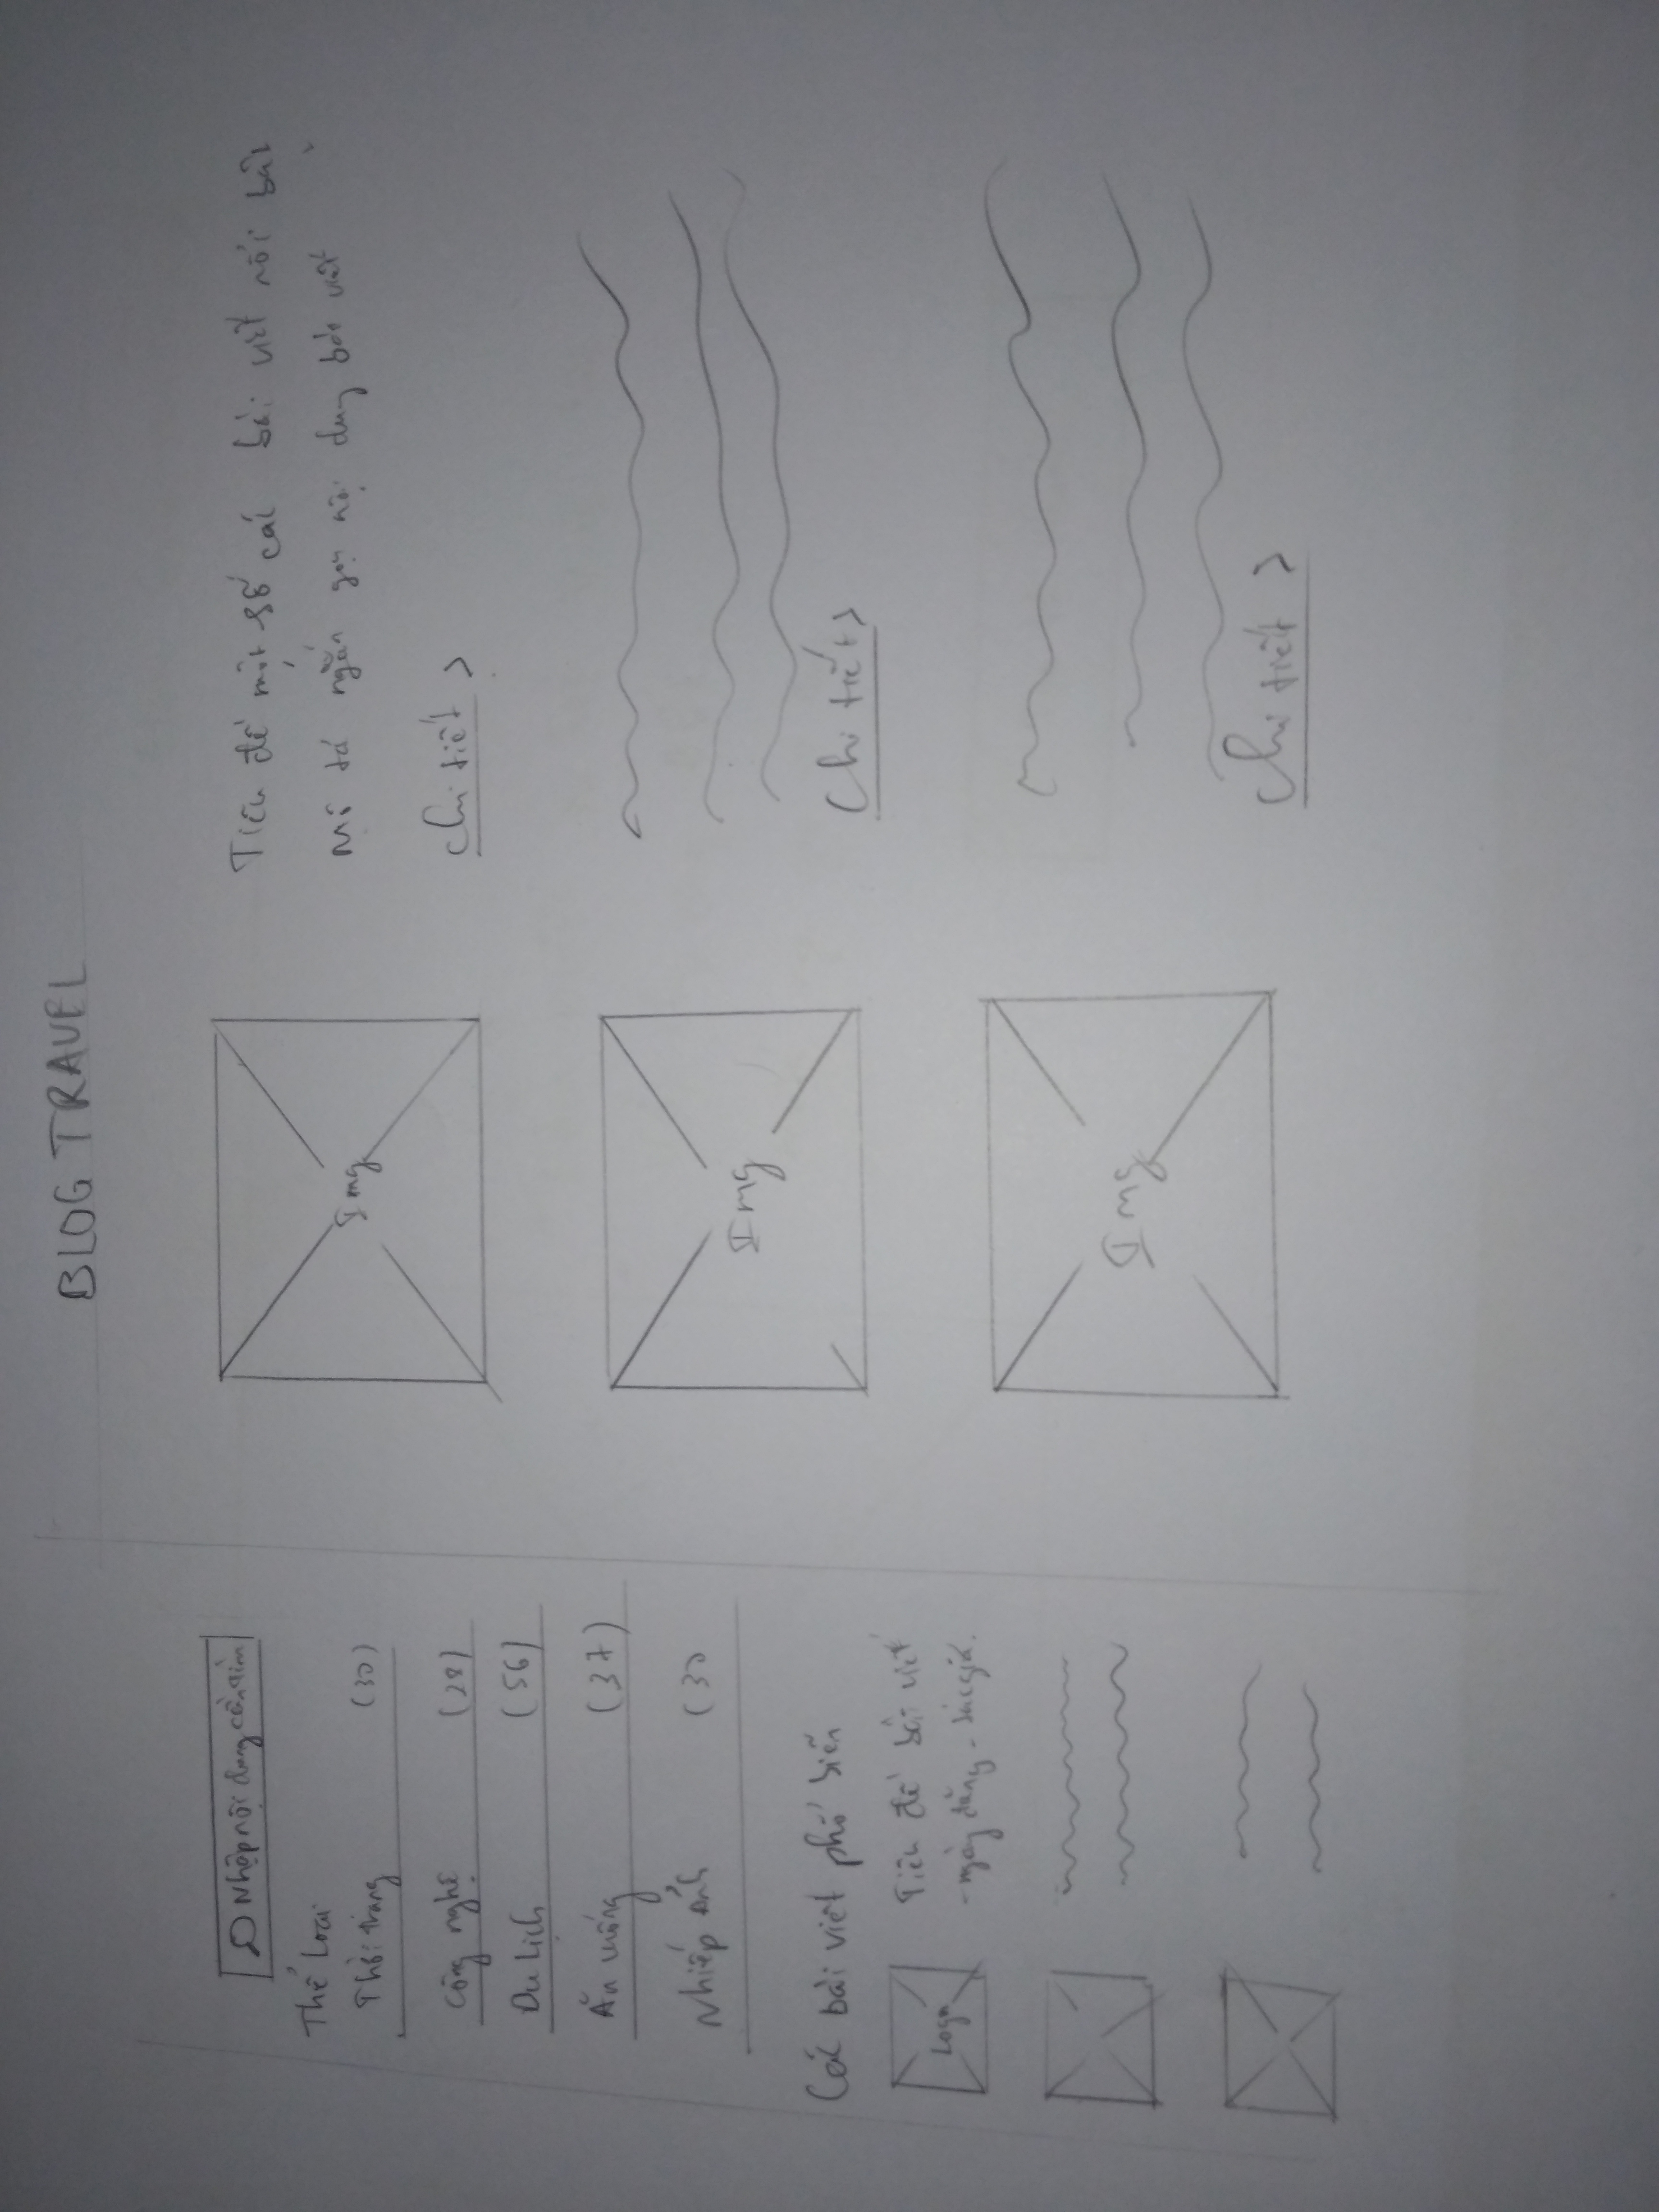 BLOG TRAVEL
Nhập nội dung cần tìm
Thể loại
Thời trang (30)
Công nghệ (28)
Du Lịch (56)
Ăn uống (37)
Nhiếp ảnh (30
Các bài viết phổ biến
Logo
Tiêu đề bài viết
- ngày đăng - tác giả.
Img
Tiêu đề một số các bài viết nổi bật
mô tả ngắn gọn nội dung bài viết
Chi tiết >
Img
Chi tiết >
Img
Chi tiết >